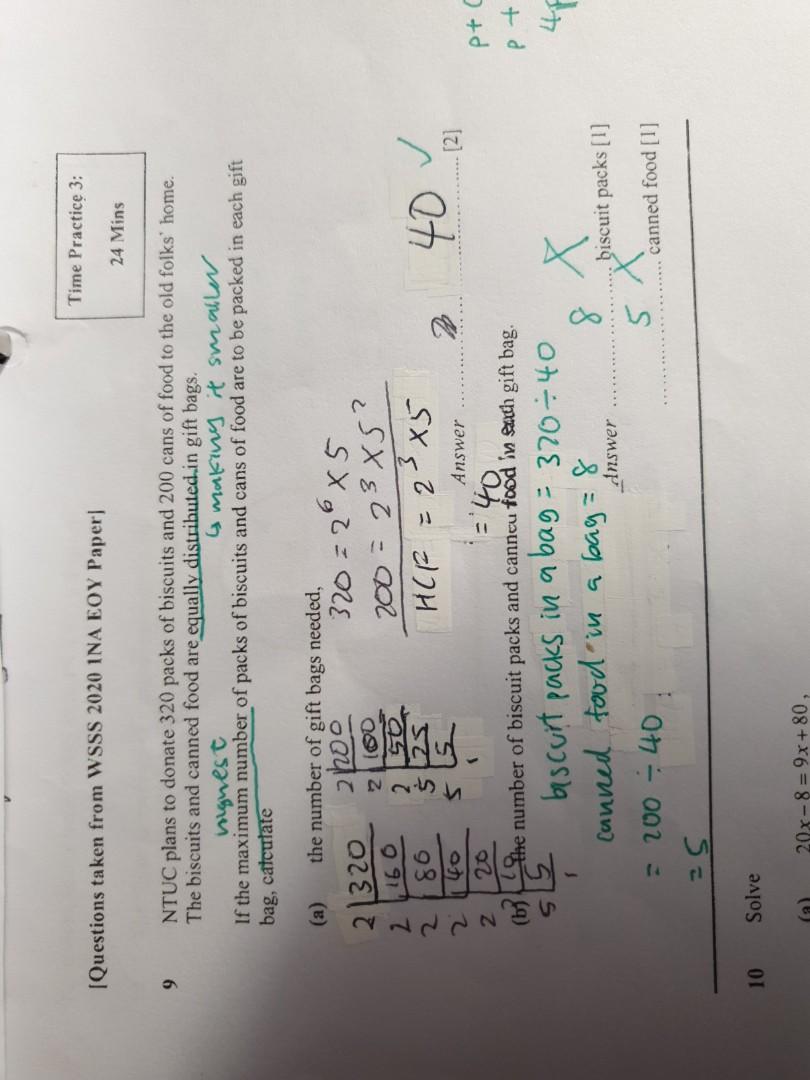 [Questions taken from WSSS 2020 1NA EOY Paper]
Time Practice 3:
24 Mins
9 NTUC plans to donate 320 packs of biscuits and 200 cans of food to the old folks' home.
The biscuits and canned food are equally distributed in gift bags.
↳ making it smaller
If the maximum number of packs of biscuits and cans of food are to be packed in each gift
bag, calculate
(a) the number of gift bags needed,
2 320
2 160
2 80
2 40
2 20
2 10
5 5
2 200
2 100
2 50
5 25
5 5
320 = 2⁶ × 5
200 = 2³ × 5²
HCF = 2³ × 5
= 40
Answer 40 ✓ [2]
(b) the number of biscuit packs and canned food in each gift bag.
biscuit packs in a bag = 320 ÷ 40
= 8
canned food in a bag
= 200 ÷ 40
= 5
Answer 8 X biscuit packs [1]
5 X canned food [1]
10 Solve
(a) 20x – 8 = 9x + 80,